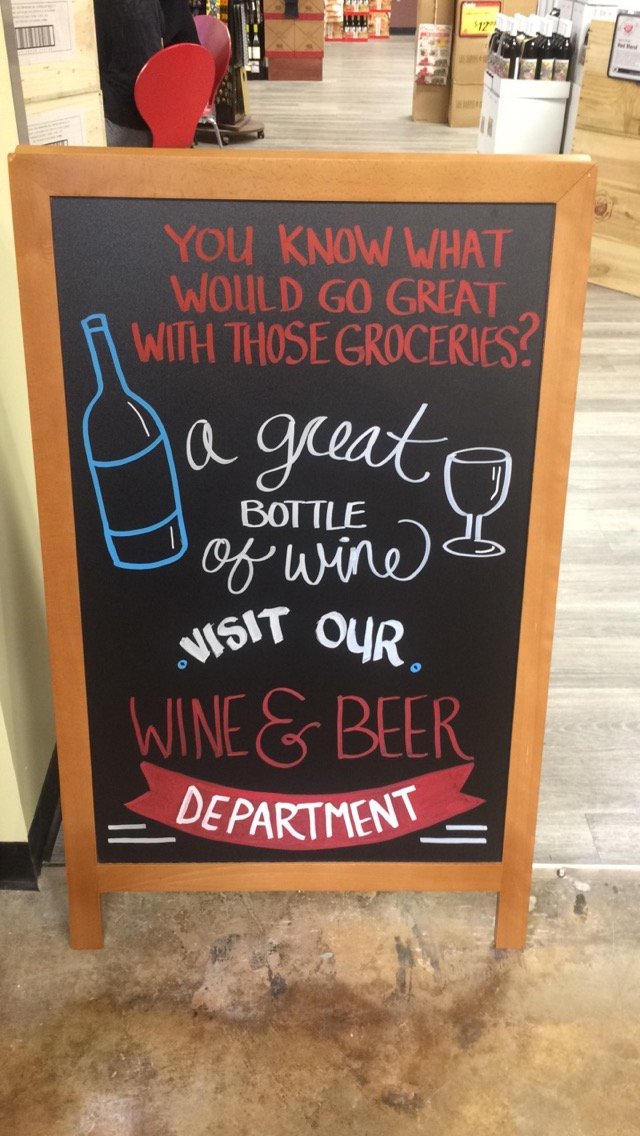 YOU KNOW WHAT
WOULD GO GREAT
WITH THOSE GROCERIES?
a great
BOTTLE
of wine
VISIT OUR
WINE & BEER
DEPARTMENT